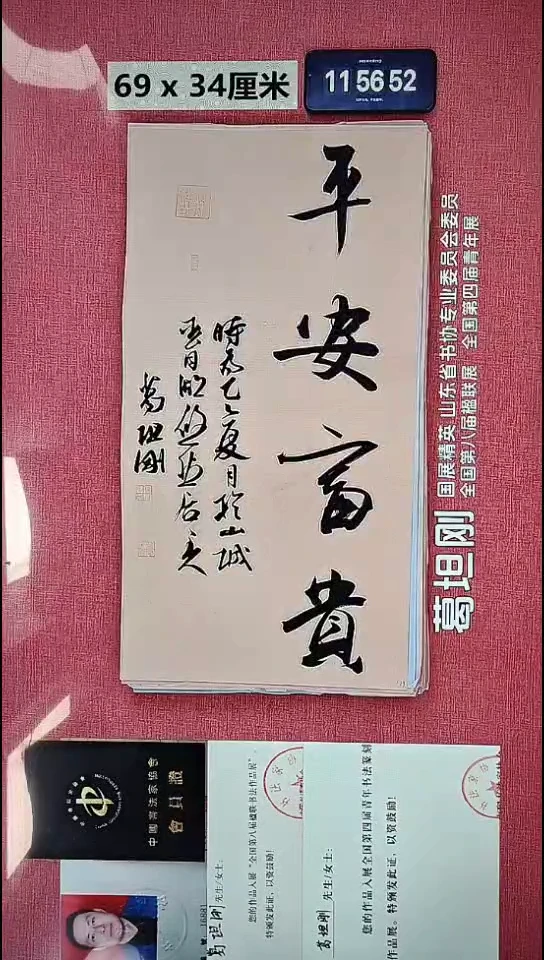 69 x 34厘米
11 56 52
平安富貴
夏月於山城
葛坦剛
国展精英 山东省书协专业委员会委员
全国第八届楹联展 全国第四届青年展
葛坦刚
中國書法家協會
會員證
葛坦刚 先生/女士:
您的作品入展“全国第八届楹联书法作品展”,
特颁发此证，以资鼓励!
葛坦刚 先生/女士:
您的作品入展全国第四届青年书法篆刻
作品展。特颁发此证，以资鼓励!